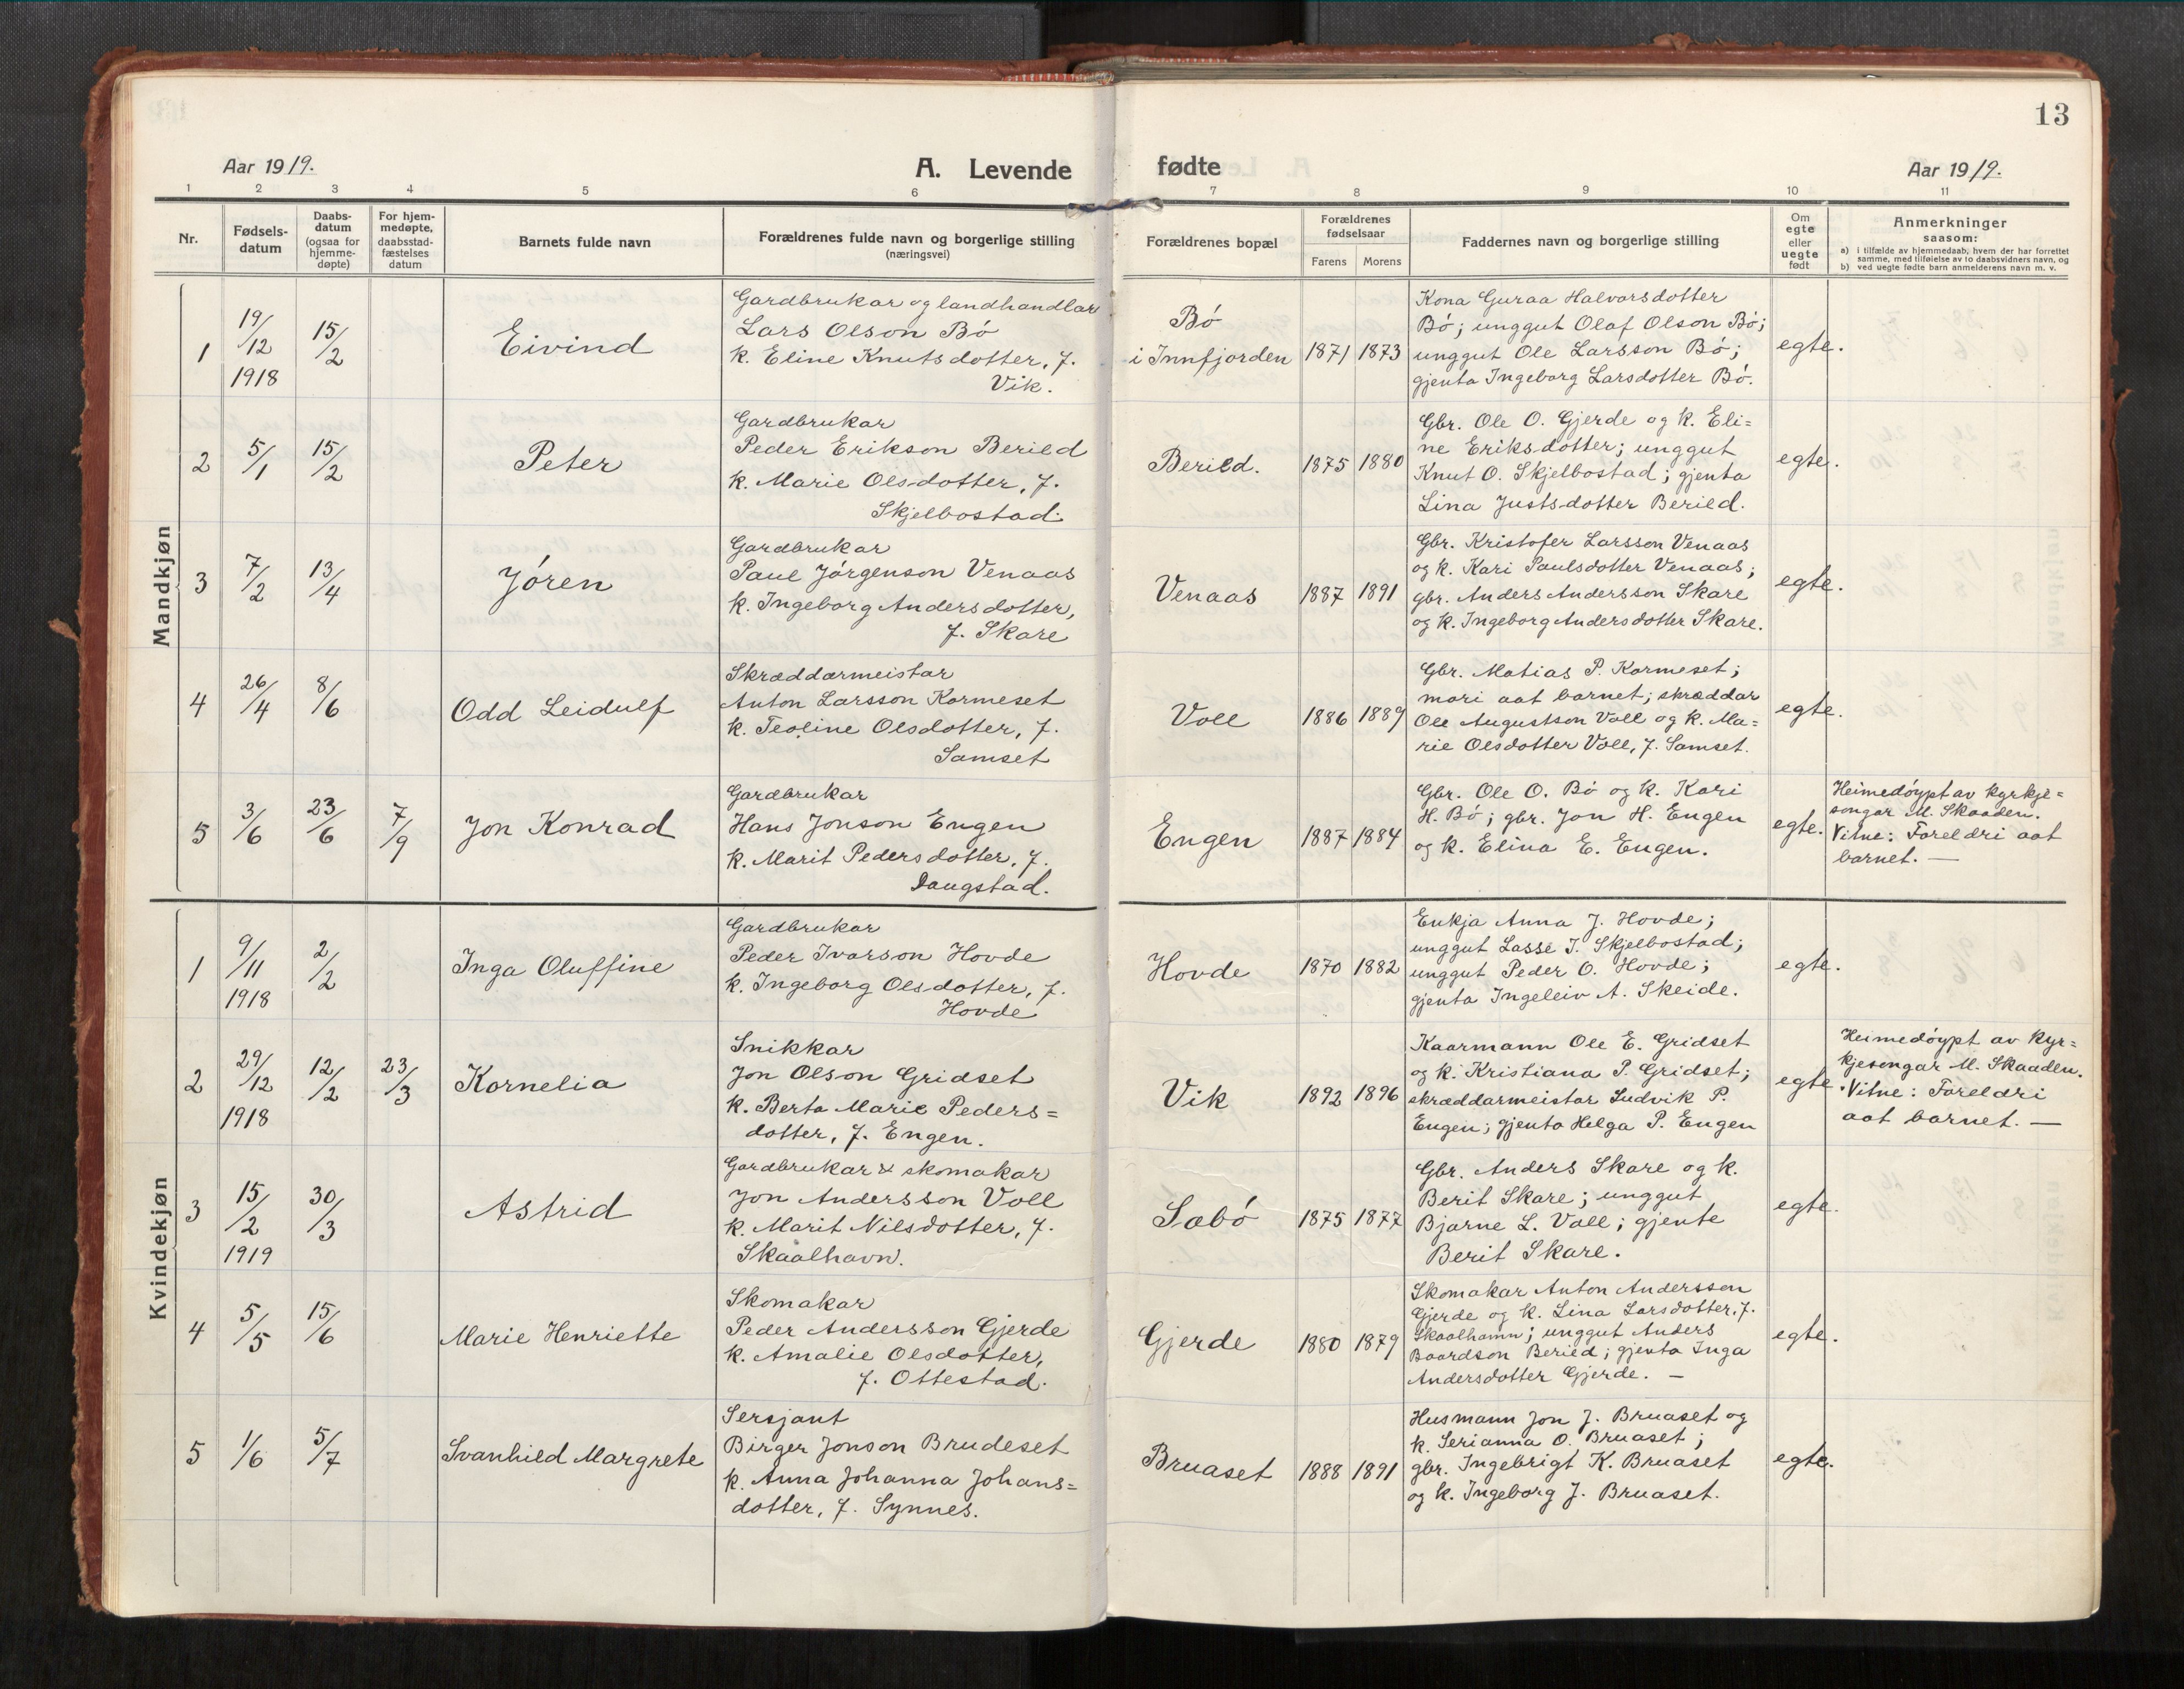 13
Aar 1919.
A. Levende fødte
Aar 1919.
1 2 3 4 5 6 7 8 9 10 11
Nr.
Fødsels-
datum
Daabs-
datum
(ogsaa for
hjemme-
døpte)
For hjem-
medøpte,
daabsstad-
fæstelses
datum
Barnets fulde navn
Forældrenes fulde navn og borgerlige stilling
(næringsvei)
Forældrenes bopæl
Forældrenes
fødselsaar
Farens Morens
Faddernes navn og borgerlige stilling
Om
egte
eller
uegte
født
Anmerkninger
saasom:
a) i tilfælde av hjemmedaab, hvem der har forrettet
samme, med tilføielse av to daabsvidners navn, og
b) ved uegte fødte barn anmelderens navn m. v.
Mandkjøn
1
19/12
1918
15/2
Eivind
Gardbrukar og landhandlar
Lars Olson Bö
k. Eline Knutsdotter, f.
Vik.
Bö
i Innfjorden
1871 1873
Kona Guraa Halvorsdotter
Bö; unggut Olaf Olson Bö;
unggut Ole Larsson Bö;
gjenta Ingeborg Larsdotter Bö.
egte.
2
5/1
15/2
Peter
Gardbrukar
Peder Erikson Berild
k. Marie Olsdotter, f.
Skjelbostad.
Berild.
1875 1880
Gbr. Ole O. Gjerde og k. Eli=
ne Eriksdotter; unggut
Knut O. Skjelbostad; gjenta
Lina Justsdotter Berild.
egte.
3
7/2
13/4
Jören
Gardbrukar
Paul Jörgenson Venaas
k. Ingeborg Andersdotter,
f. Skare
Venaas
1887 1891
Gbr. Kristofer Larsson Venaas
og k. Kari Paulsdotter Venaas;
gbr. Anders Andersson Skare
og k. Ingeborg Andersdotter Skare.
egte.
4
26/4
8/6
Odd Leidulf
Skræddarmeistar
Anton Larsson Kormeset
k. Teoline Olsdotter, f.
Samset
Voll
1886 1889
Gbr. Matias P. Kormeset;
mori aat barnet; skræddar
Ole Augustson Voll og k. Ma=
rie Olsdotter Voll, f. Samset.
egte.
5
3/6
23/6
7/9
Jon Konrad
Gardbrukar
Hans Jonson Engen
k. Marit Pedersdotter, f.
Daugstad.
Engen
1887 1884
Gbr. Ole O. Bö og k. Kari
H. Bö; gbr. Jon H. Engen
og k. Elina E. Engen.
egte.
Heimedöypt av kyrkje=
songar M. Skaaden.
Vitne: Foreldri aat
barnet. —
Kvindekjøn
1
9/11
1918
2/2
Inga Oluffine
Gardbrukar
Peder Ivarson Hovde
k. Ingeborg Olsdotter, f.
Hovde
Hovde
1870 1882
Enkja Anna J. Hovde;
unggut Lasse I. Skjelbostad;
unggut Peder O. Hovde;
gjenta Ingeleiv A. Skeide.
egte.
2
29/12
1918
12/2
23/3
Kornelia
Snikkar
Jon Olson Gridset
k. Berta Marie Peders=
dotter, f. Engen.
Vik
1892 1896
Kaarmann Ole E. Gridset
og k. Kristiana P. Gridset;
skræddarmeistar Ludvik P.
Engen; gjenta Helga P. Engen
egte.
Heimedöypt av kyr=
kjesongar M. Skaaden.
Vitne: Foreldri
aat barnet. —
3
15/2
1919
30/3
Astrid
Gardbrukar & skomakar
Jon Andersson Voll
k. Marit Nilsdotter, f.
Skaalhavn.
Sæbö
1875 1877
Gbr. Anders Skare og k.
Berit Skare; unggut
Bjarne L. Voll; gjente
Berit Skare.
egte.
4
5/5
15/6
Marie Henriette
Skomakar
Peder Andersson Gjerde
k. Amalie Olsdotter,
f. Ottestad.
Gjerde
1880 1879
Skomakar Anton Andersson
Gjerde og k. Lina Larsdotter, f.
Skaalhamn; unggut Anders
Baardson Berild; gjenta Inga
Andersdotter Gjerde. —
egte.
5
1/6
5/7
Svanhild Margrete
Sersjant
Birger Jonson Brudeset
k. Anna Johanna Johans=
dotter, f. Synnes.
Bruaset
1888 1891
Husmann Jon J. Bruaset og
k. Serianna O. Bruaset;
gbr. Ingebrigt K. Bruaset
og k. Ingeborg J. Bruaset.
egte.